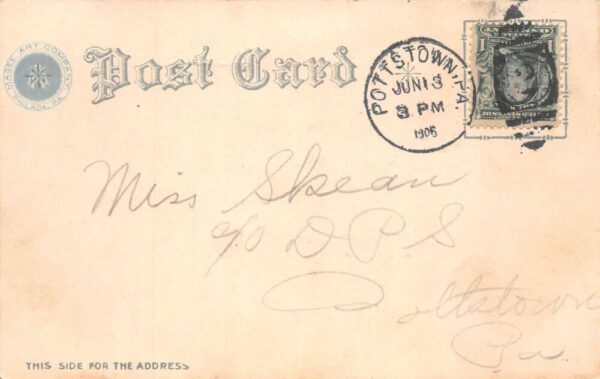 MAGEE ART COMPANY
PHILADA. PA.
Post Card
POTTSTOWN, PA.
JUN 13
3 PM
1906
1 1
Miss Skean
c/o D P S
Pottstown
Pa
THIS SIDE FOR THE ADDRESS